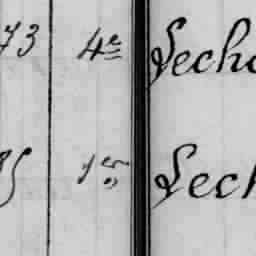 73 4e Secho
1er Sech